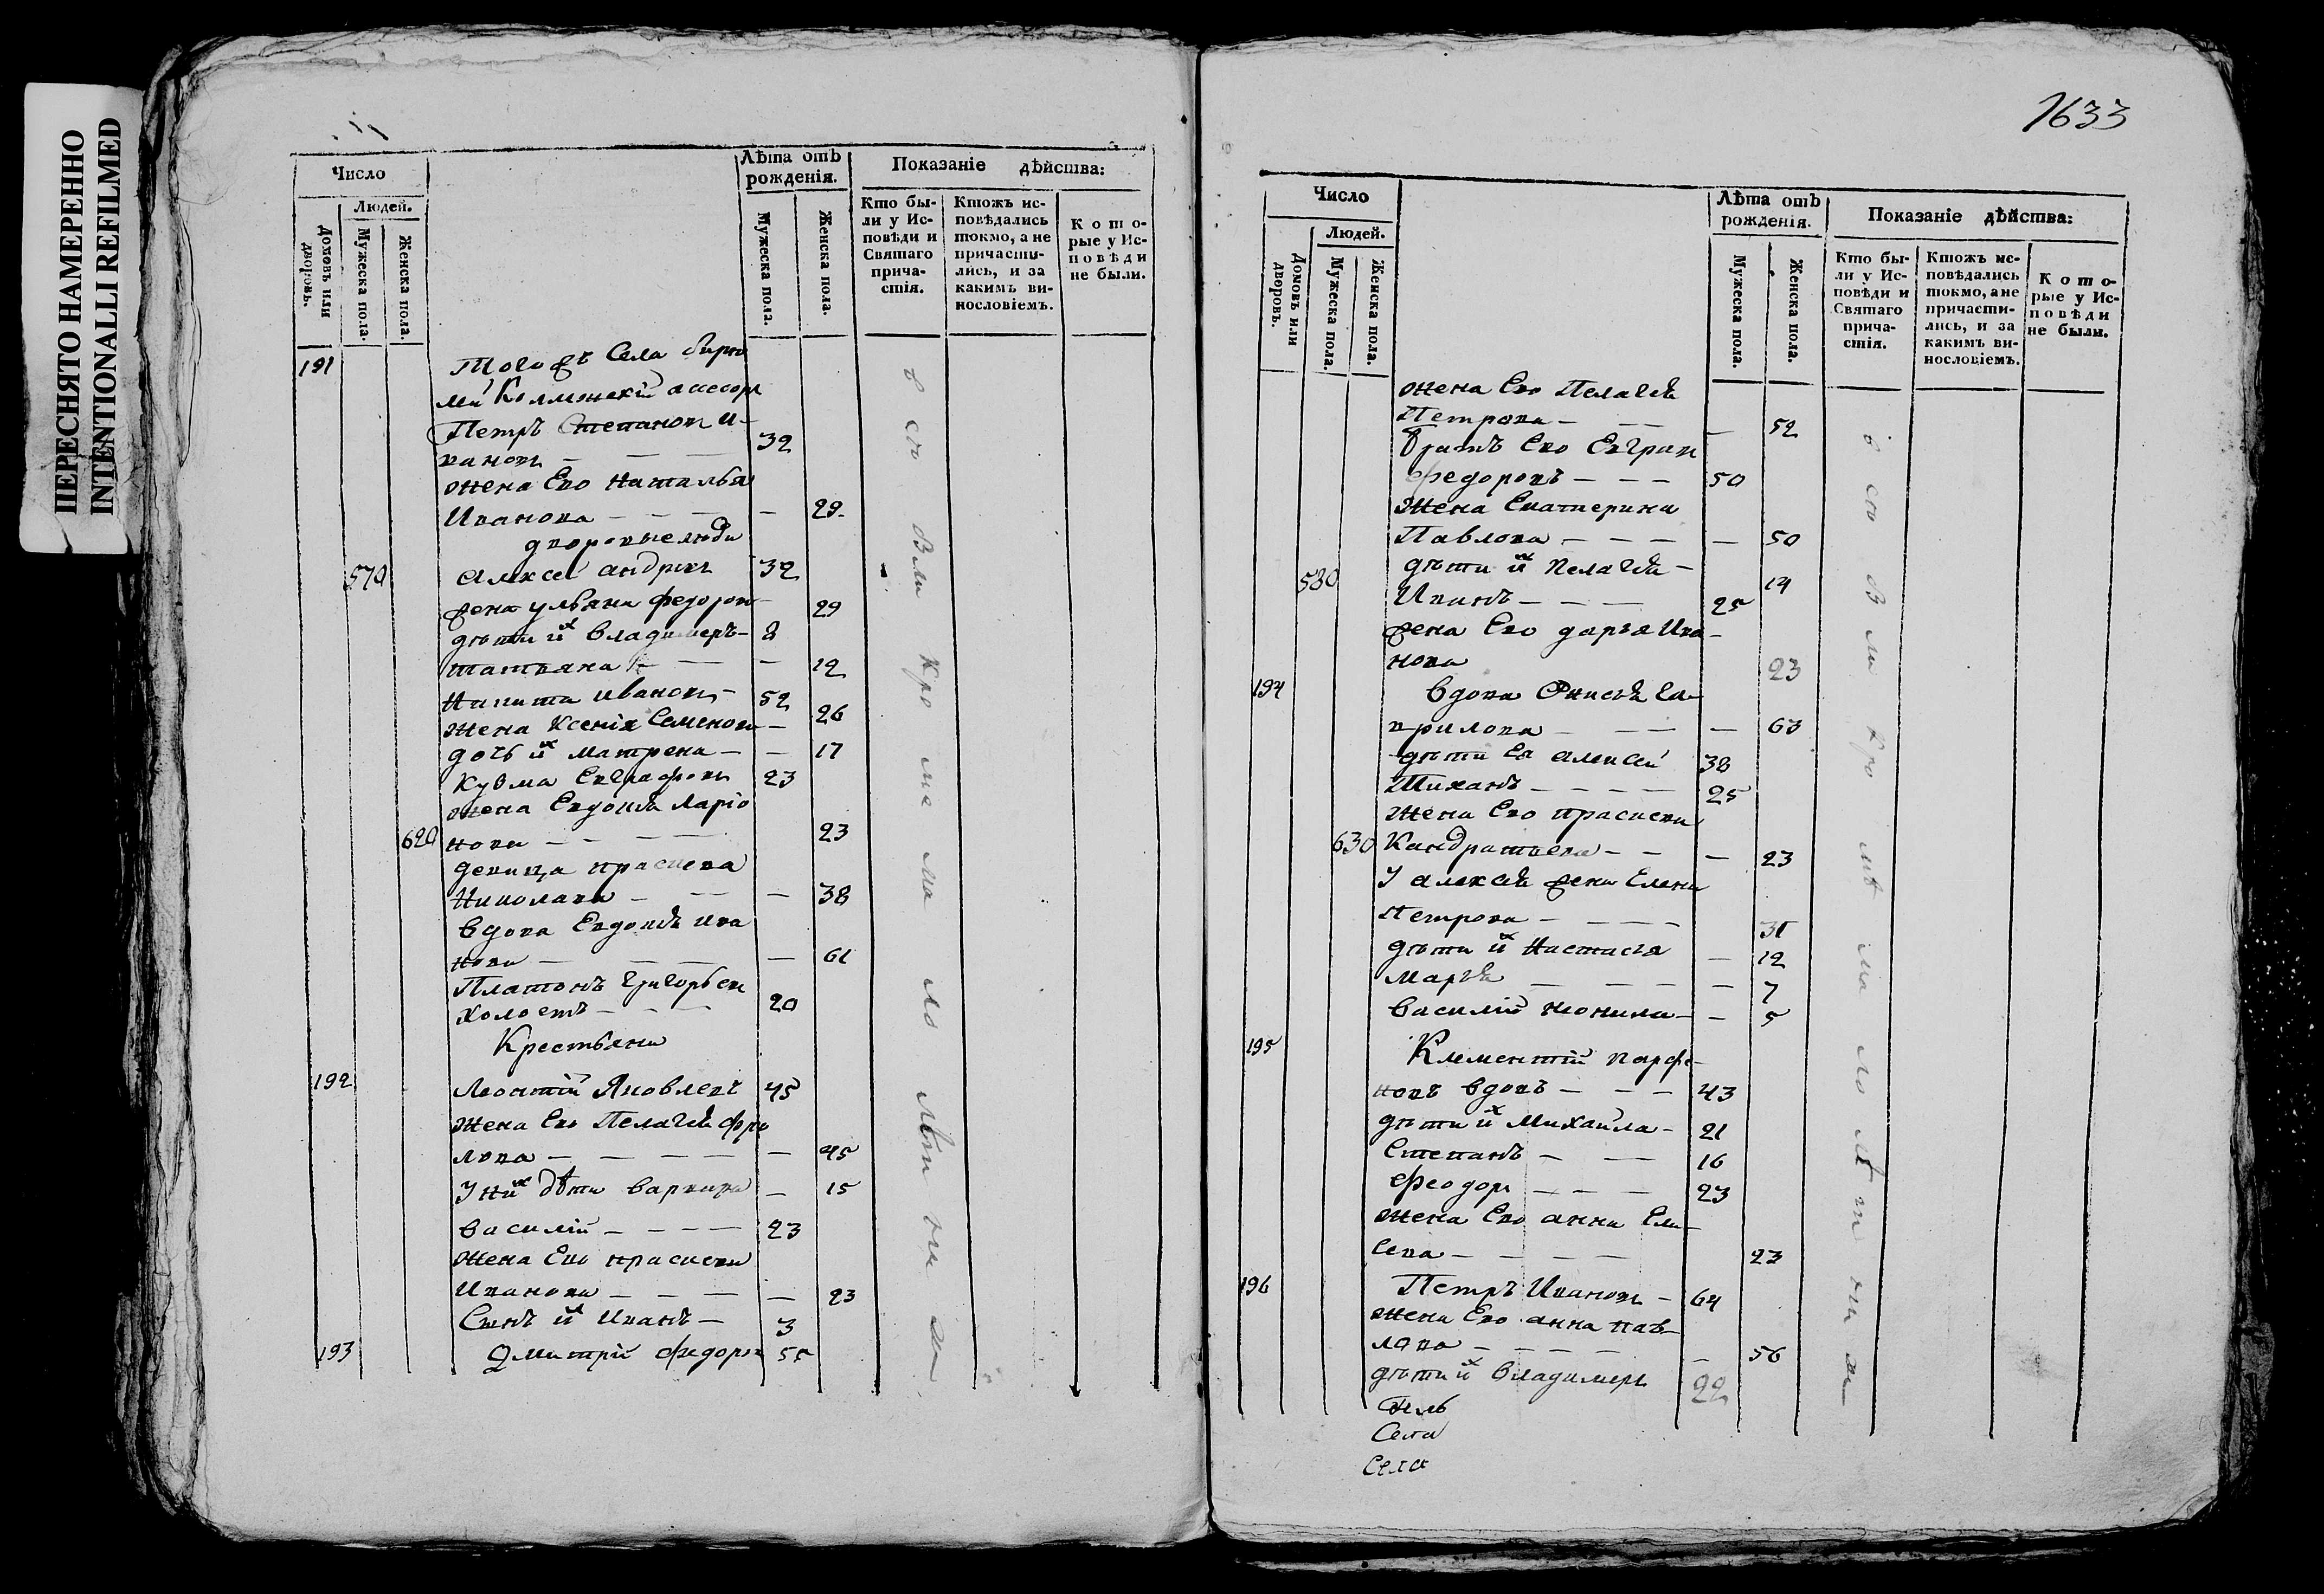 ПЕРЕСНЯТО НАМЕРЕННО
INTENTIONALLI REFILMED
Число
Людей.
Домовъ или дворовъ.
Мужеска пола.
Женска пола.
Лѣта отъ рожденія.
Мужеска пола.
Женска пола.
Показаніе дѣйства:
Кто бы-
ли у Ис-
повѣди и
Святаго
прича-
стія.
Ктожъ ис-
повѣдались
токмо, а не
причасти-
лись, и за
какимъ ви-
нословіемъ.
Кото-
рые у Ис-
повѣди
не были.
191 Тогожъ Села
Коллежскій ассесоръ
Петръ Степановъ И-
вановъ — — — 32
жена Его Наталья
Иванова — — — — 29
дворовые люди
570 Алексей андреевъ 32
жена ульяна федорова 29
дѣти их владимеръ — 8
татьяна — — — 12
Никита ивановъ — 52
жена Ксенія Семенова — 26
дочь их матрена — — 17
Кузма Евграфовъ 23
жена Евдокия Ларіо
620 нова — — — 23
девица праскева
Николаева — — — 38
вдова Евдокия ива
нова — — — — 61
Платонъ григорьевъ
холостъ — — — 20
Крестьяни
192 Леонтій Яковлевъ 45
жена Его Пелагея фро
лова — — — — — 45
У них дѣти варвара — 15
василій — — — — 23
жена Его праскева
Иванова — — — — 23
Сынъ их Иванъ — 3
193 Дмитрій федоровъ 55
1633
Число
Людей.
Домовъ или дворовъ.
Мужеска пола.
Женска пола.
Лѣта отъ рожденія.
Мужеска пола.
Женска пола.
Показаніе дѣйства:
Кто бы-
ли у Ис-
повѣди и
Святаго
прича-
стія.
Ктожъ ис-
повѣдались
токмо, а не
причасти-
лись, и за
какимъ ви-
нословіемъ.
Кото-
рые у Ис-
повѣди
не были.
жена Его Пелагея
Петрова — — — 52
братъ Его Евграф
федоровъ — — — 50
жена Екатерина
Павлова — — — — 50
дѣти их пелагея — 14
580 Иванъ — — — 25
жена Его дарья Ива-
нова 23
194 вдова Га-
врилова — — — — 63
дѣти Ея алексей 38
Тиханъ — — — — 25
жена Его праскева
630 Кандратьева — — — 23
У алексея жена Елена
Петрова — — — — 31
дѣти их Настасья — 12
марья — — — — 7
василій — — 5
195 Клементій парфе-
новъ вдовъ — — — 43
дѣти их Михаила — 21
Степанъ — — — 16
феодоръ — — — 23
жена Его анна Ели-
сева — — — — 23
196 Петръ Ивановъ — 64
жена Его анна пав-
лова — — — — — 56
дѣти их владимеръ 22
Села
Села